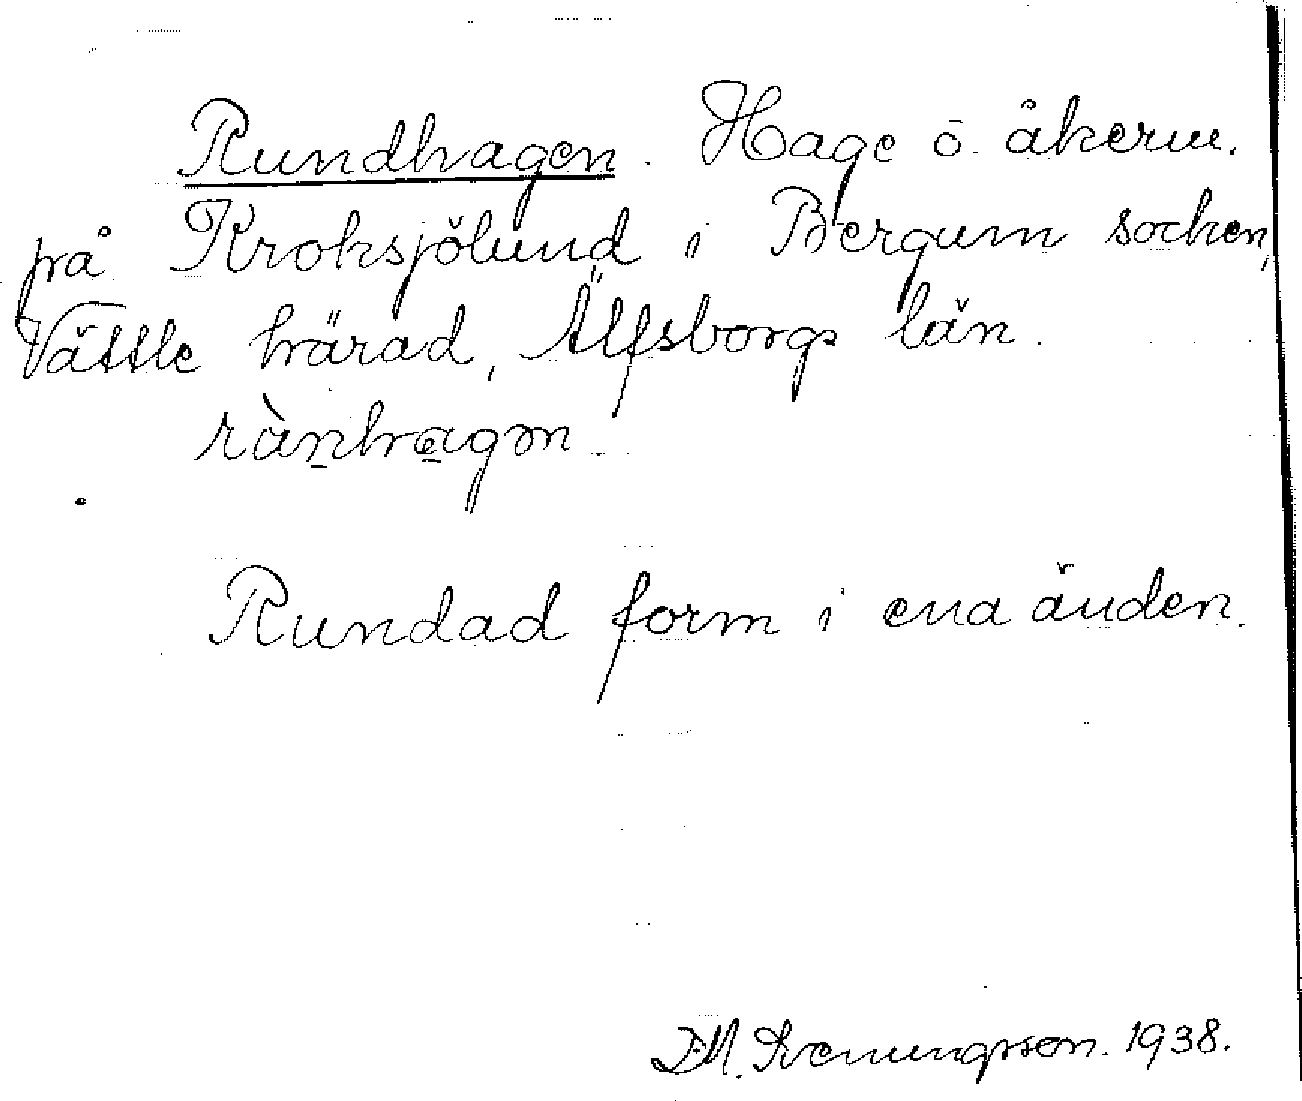 Rundhagen. Hage o. åkerm.
på Kroksjölund i Bergum socken,
Vättle härad, Älfsborgs län.
rànhagən.
Rundad form i ena änden.
D.M. Svenungsson. 1938.